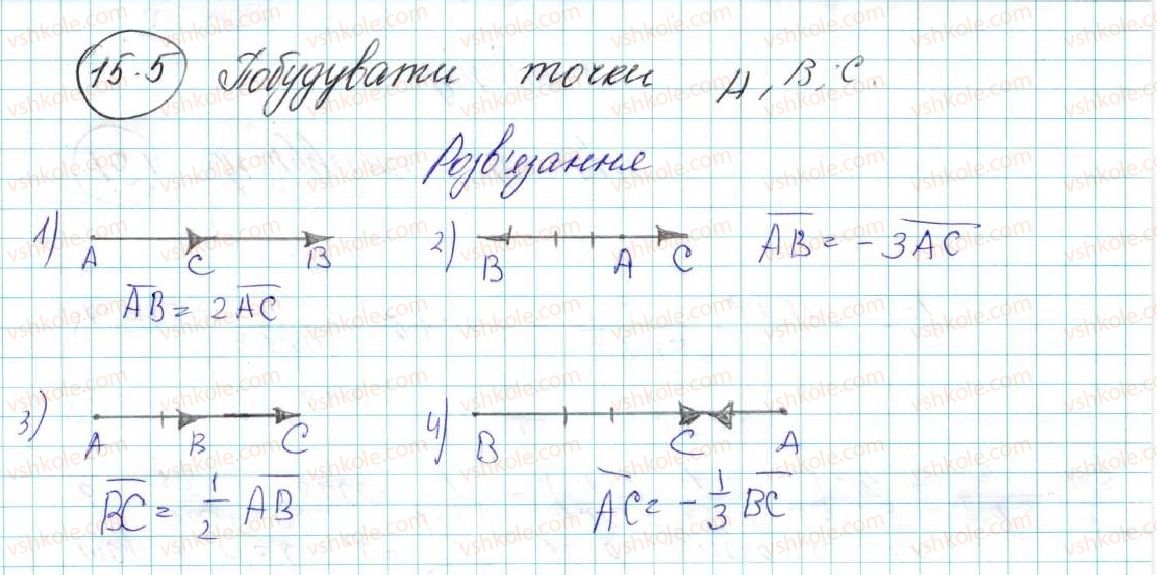 15.5 Побудувати точки A, B, C.
Розв'язання
1) A C B 2) B A C AB = -3AC
AB = 2AC
3) A B C 4) B C A
BC = 1/2 AB AC = -1/3 BC
vshkole.com